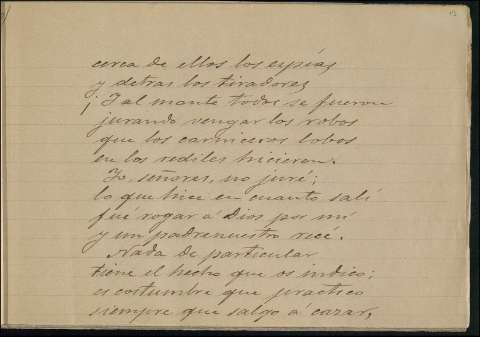 cerca de ellos los espías
y detras los tiradores
¡Tal mante todos se fueron
jurando vengar los robos
que los carniceros lobos
en los rediles hicieron.
Yo, señores, no juré;
lo que hice en cuanto salí
fué rogar á Dios por mí
y un padrenuestro recé.
Nada de particular
tiene el hecho que os indico;
es costumbre que practico
siempre que salgo á cazar,